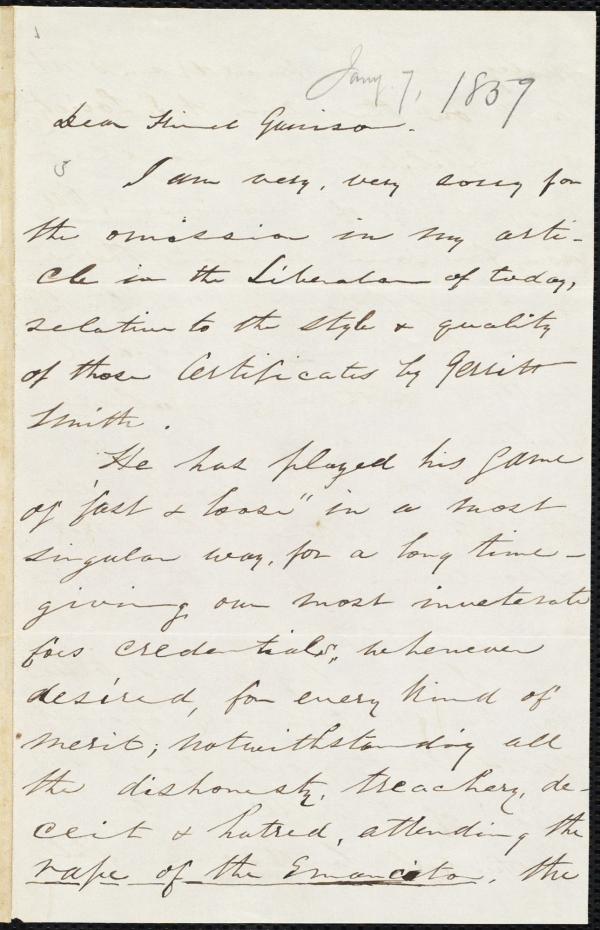 Jany. 7, 1859
Dear Friend Garrison.
I am very, very sorry for
the omission in my arti-
cle in the Liberator of today,
relative to the style & quality
of those Certificates by Gerritt
Smith.
He has played his game
of "fast & loose" in a most
singular way, for a long time-
giving our most inveterate
foes credentials, whenever
desired, for every kind of
merit; notwithstanding all
the dishonesty, treachery, de-
ceit & hatred, attending the
rape of the Emancitor, the